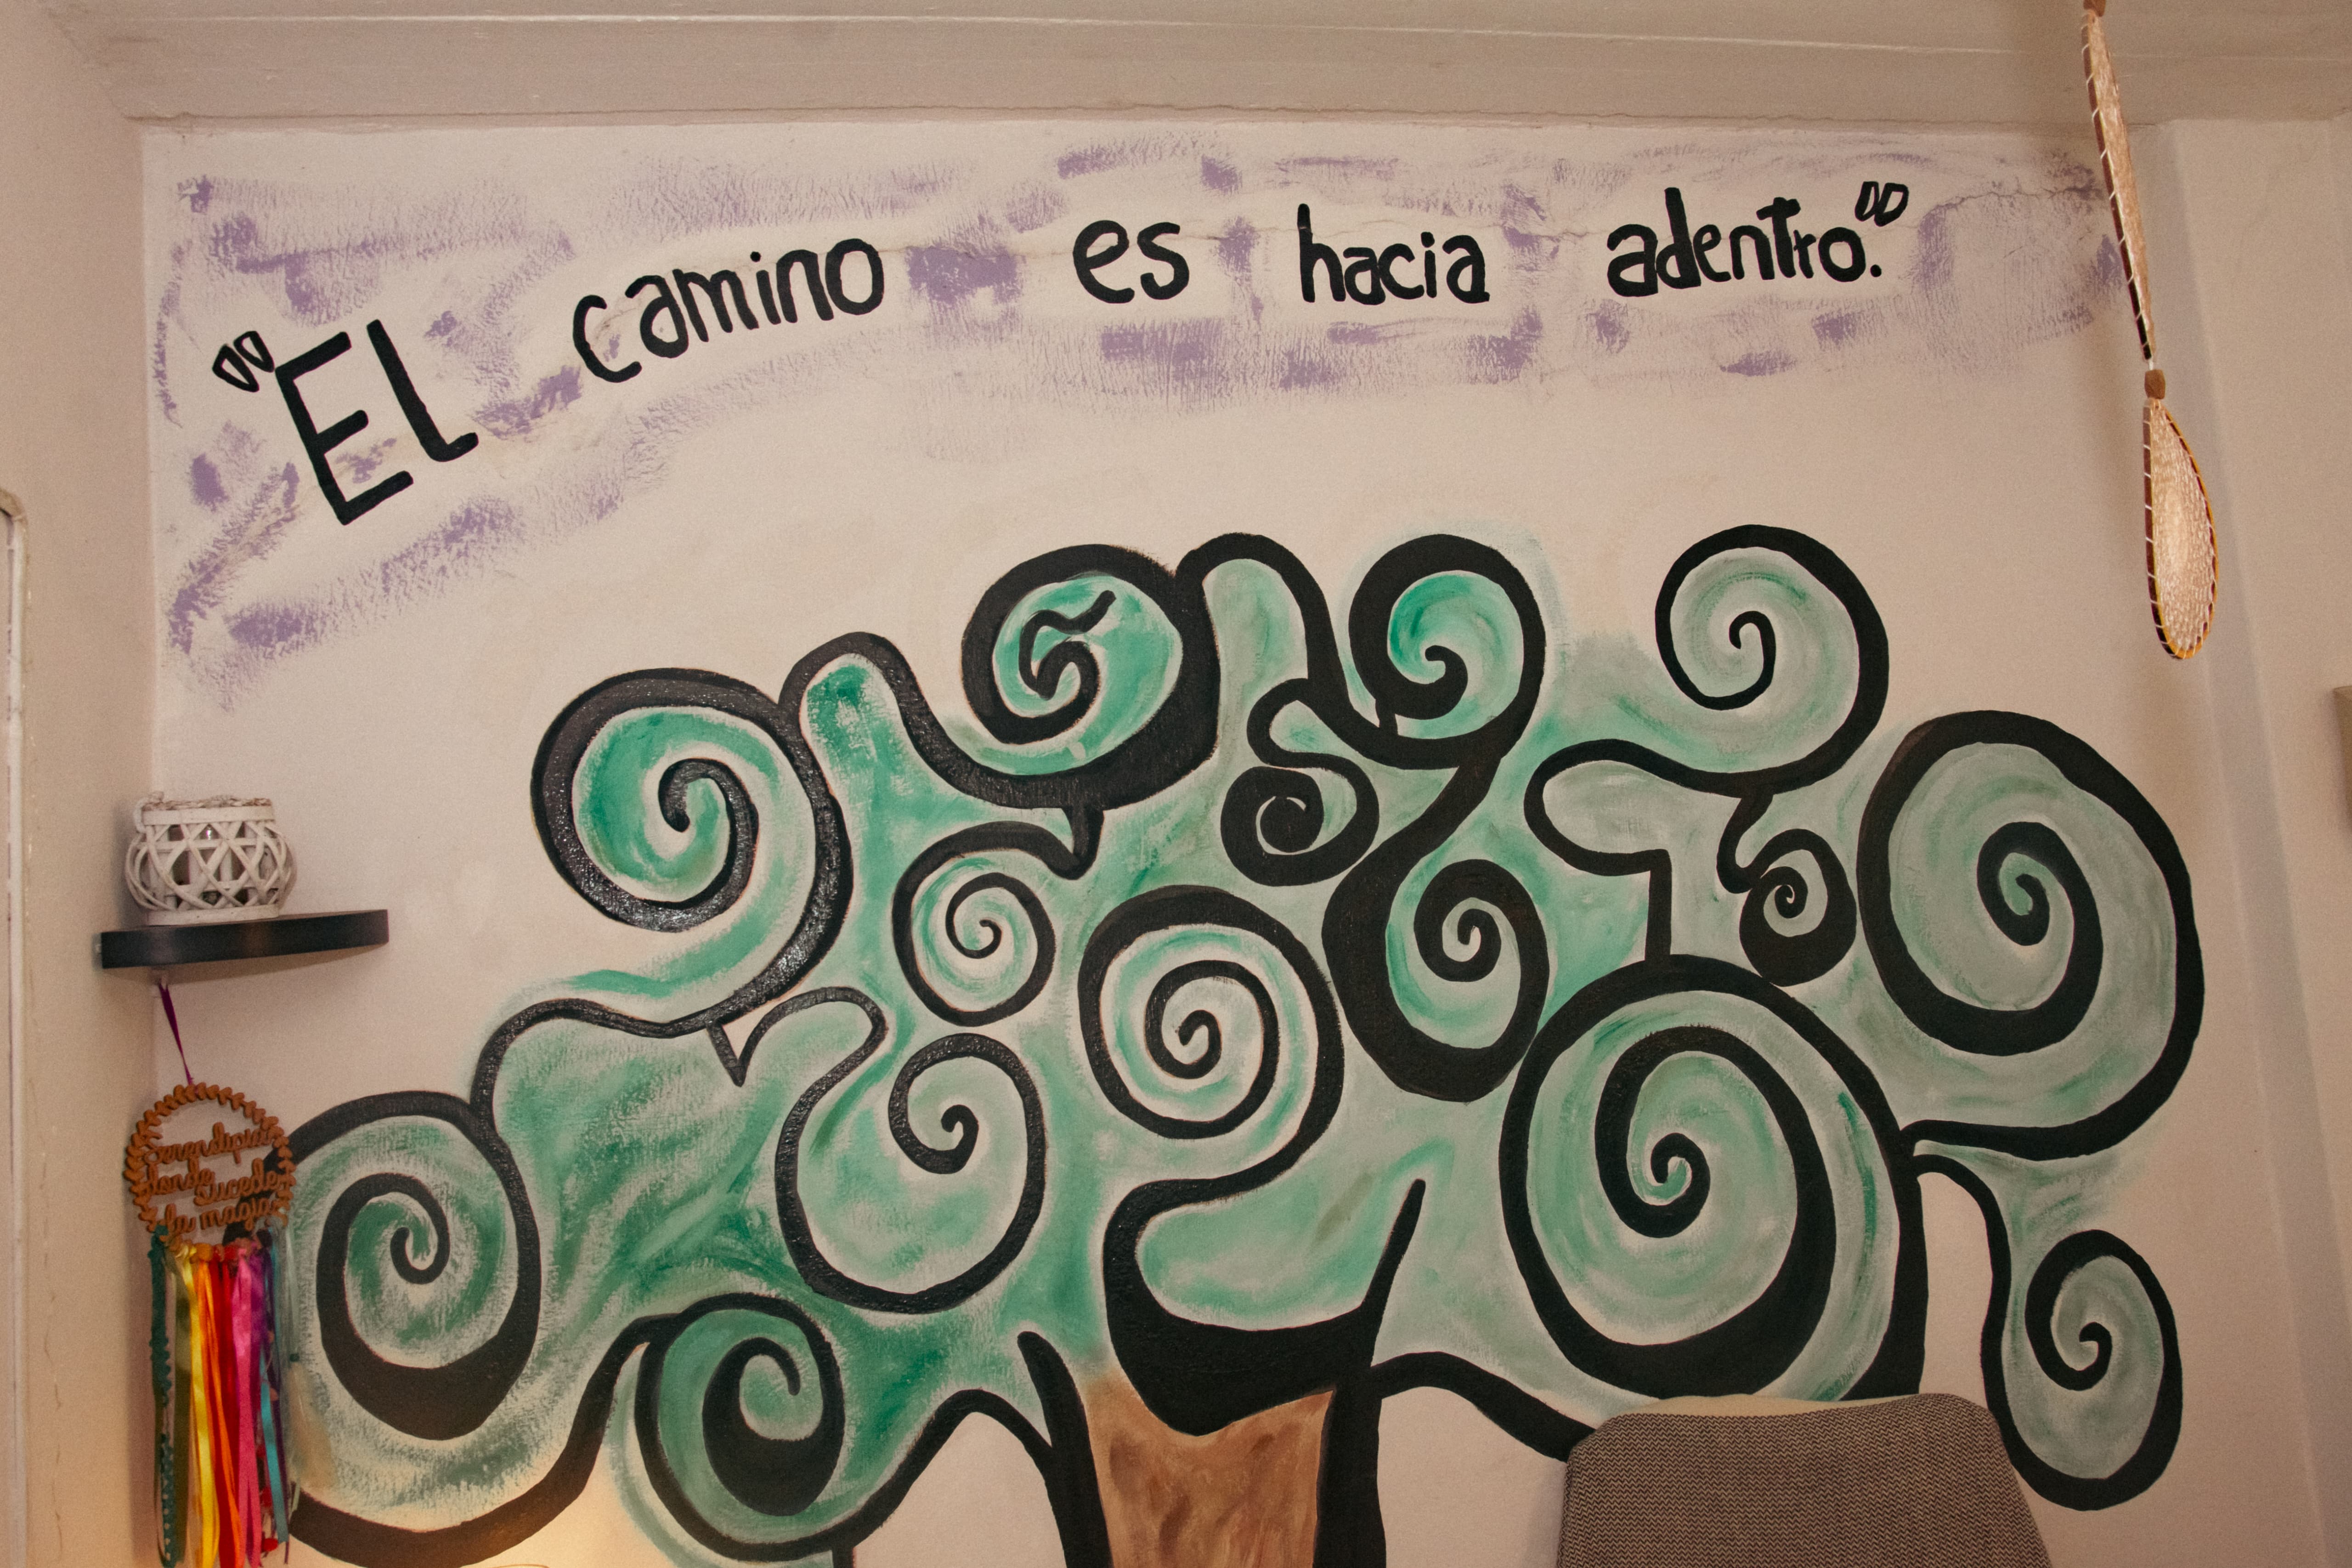 "El camino es hacia adentro."
Serendipia
donde
sucede
la magia